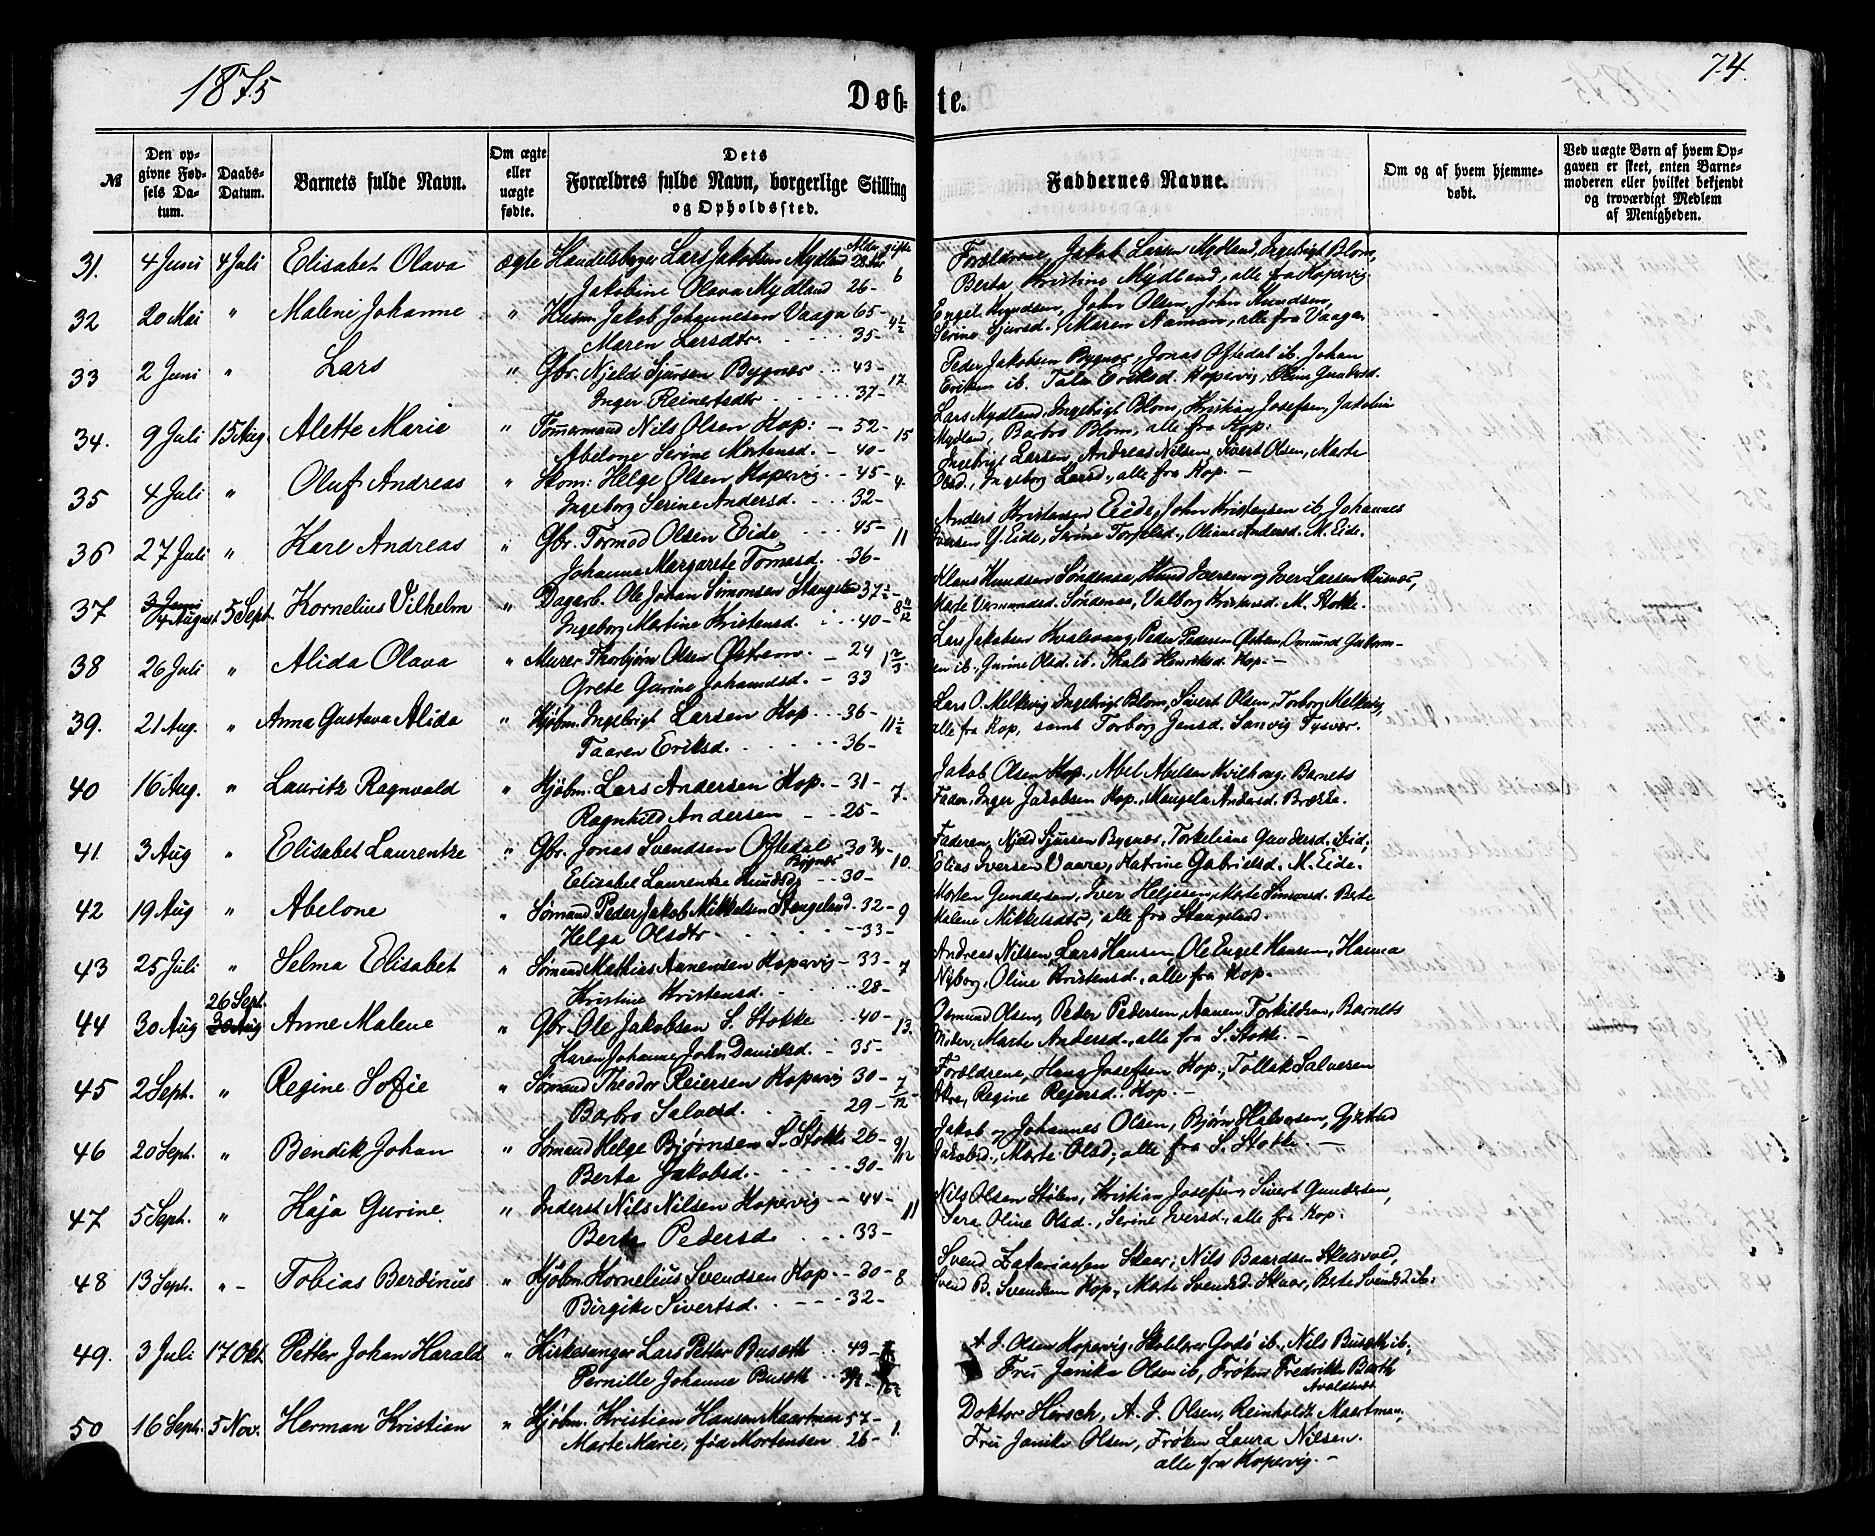 1875
Døbte.
74.
№
Den opgivne Fødsels Datum.
Daabs-Datum.
Barnets fulde Navn.
Om ægte eller uægte fødte.
Dets Forældres fulde Navn, borgerlige Stilling og Opholdssted.
Faddernes Navne.
Om og af hvem hjemmedøbt.
Ved uægte Børn af hvem Opgaven er skeet, enten Barnemoderen eller hvilket bekjendt og troværdigt Medlem af Menigheden.
Alder gifte
31. 4 Juni 4 Juli Elisabet Olava ægte Handelsborger Lars Jakobsen Mydland 28 Aar
Jakobine Olava Mydland 26 - 6
Forældrene, Jakob Larsen Mydland, Ingebrigt Blom,
Berta Kristine Mydland, alle fra Kopervig.
32 20 Mai " Maleni Johanne " Husm. Jakob Johannesen Vaaga 65 -
Maren Larsdtr. 35 - 4½
Engel Knudsen, John Olsen, John Knudsen,
Serine Sjursd., Maren Aaman, alle fra Vaaga.
33 2 Juni " Lars " Gbr. Njeld Sjursen Bygnes 43 -
Inger Reinertsdtr 37 - 17
Peder Jakobsen Bygnes, Jonas Oftedal ib, Johan
Eriksen ib. Talle Eriksd. Kopervig, Oline Gundersd.
34. 9 Juli 15 Aug. Alette Marie " Tømmermand Nils Olsen Kop: - 52 -
Abelone Serine Mortensd. - 40 - 15
Lars Mydland, Ingebrigt Blom, Kristian Josefsen, Jakobine
Mydland, Barbro Blom, alle fra Kop:
35 4 Juli " Oluf Andreas " Skom: Helge Olsen Kopervig - 45 -
Ingeborg Serine Andersd. 32 - 4.
Ingebrigt Larsen, Andreas Nilsen, Sivert Olsen, Marte
Olsd., Ingeborg Larsd., alle fra Kop. -
36 27 Juli " Karl Andreas " Gbr. Tormod Olsen Eide 45 -
Johanne Margarete Tomasd. - 36 - 11
Anders Kristensen Eide, John Kristensen ib, Johannes
Iversen Y. Eide, Serine Torfelsd., Oliane Andersd. M. Eide.
37 3 Juni 4 August 5 Sept. Kornelius Vilhelm " Dagarb. Ole Johan Simonsen Stangeland 37½ -
Ingeborg Martine Kristensd. 40 -
Klaus Knudsen Søndenaa, Knud Iversen og Iver Larsen Husnes,
Marte Vermundsd. Søndenaa, Valborg Kristensd. M. Stokke.
38 26 Juli " Alida Olava " Murer Thorbjørn Olsen Østrem. - 24
Grete Gurine Johannesd. - 33 1⅔
Lars Jakobsen Kvalevaag, Peder Pedersen Østrem, Osmund Gutorm-
sen ib., Gurine Olsd. ib. Thale Henriksd. Kop. -
39. 21 Aug. " Anna Gustava Alida " Kjøbm. Ingebrigt Larsen Kop. 36 -
Taaren Eriksd. 36 - 11½
Lars O. Melkevig, Ingebrigt Blom, Sivert Olsen, Torborg Melkevig,
alle fra Kop, samt Torborg Jensd. Sanvig Tysver.
40 16 Aug. " Lauritz Ragnvald " Kjøbm. Lars Andersen Kop. - 31 -
Ragnhild Andersen 25 - 7.
Jakob Olsen Kop., Abel Abelsen Kvilhaug, Barnets
Fader, Inger Jakobsen Kop., Mangela Andersd. Brekke.
41. 3 Aug " Elisabet Laurentze " Gbr. Jonas Svendsen Oftedal Bygnes - 30¾ -
Elisabet Laurentze Knudsd. 30 - 10.
Faderen, Njeld Sjursen Bygnes, Torkeliane Gundersd. Eid,
Elias Iversen Vaare, Katrine Gabrielsd. M. Eide.
42 19 Aug " Abelone " Sømand Peder Jakob Mikkelsen Stangeland - 32 -
Helga Olsdtr 33 - 9
Morten Gundersen, Iver Helgesen, Marte Simonsd. Berte
Malene Mikkelsdtr, alle fra Stangeland.
43 25 Juli " Selma Elisabet " Sømand Mathias Aanensen Kopervig - 33 -
Kristine Kristensd. 28 - 7
Andreas Nilsen, Lars Hansen, Ole Engel Hansen, Hanna
Nyborg, Oline Kristensd., alle fra Kop.
44 30 Aug 26 Sept. 30 Aug Anne Malene " Gbr. Ole Jakobsen S. Stokke 40 -
Karen Johanne John Danielsd. - 35 - 13.
Osmund Olsen, Peder Pedersen, Aanen Torkildsen, Barnets
Moder, Marte Andersd., alle fra S. Stokke. -
45 2 Sept. " Regine Sofie " Sømand Theodor Reiersen Kopervig 30 -
Barbro Salvesd. 29 - 7/12
Forældrene, Hans Josefsen Kop., Tollak Salvesen
Akre, Regine Reiersd. Kop. -
46 20 Sept. " Bendik Johan " Sømand Helge Bjørnsen S. Stokke 26 -
Berta Jakobsd. 30 - 9/12
Jakob og Johannes Olsen, Bjørn Halvorsen, Gjertrud
Jakobsd., Marte Olsd., alle fra S. Stokke. -
47 5 Sept. " Kaja Gurine " Inderst Nils Nilsen Kopervig - 44 -
Berta Pedersd. 33 - 11
Nils Olsen Stølen, Kristian Josefsen, Sivert Gundersen,
Sera Oline Olsd., Serine Iversd., alle fra Kop.
48 13 Sept. " - Tobias Berdinus " Kjøbm. Kornelius Svendsen Kop. - 30 -
Birgite Sivertsd. 32 - 8
Svend Zakariassen Skaar, Nils Baardsen Skeisvold,
Svend B. Svendsen Kop., Marte Svendsd. Skaar, Berte Svendsd. ib.
49. 3 Juli 17 Okt Petter Johan Harald " Kirkesanger Lars Petter Busæth 43 -
Pernille Johanne Busæth
A. J. Olsen Kopervig, Skolelærer Godø ib., Nils Busæth ib,
Fru Janika Olsen ib, Frøken Fredrikke Barth
Avaldsnes
50 16 Sept. 5 Nov. Herman Kristian " Kjøbm. Kristian Hansen Maartman 57 -
Marte Marie, fød Mortensen 26 - 1.
Doktor Hirsch, A. J. Olsen, Reinholdt Maertman,
Fru Janike Olsen, Frøken Laura Nilsen.
alle fra Kopervig. -